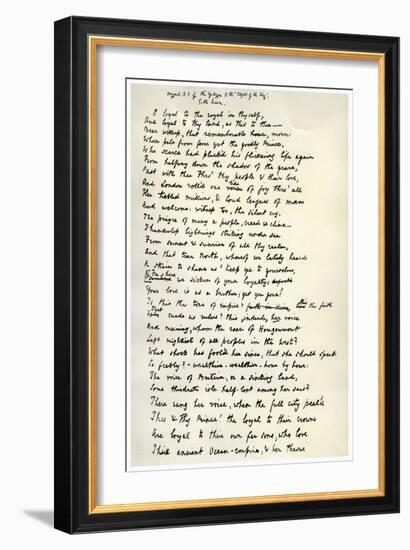 Original M.S. of the Epilogue to the "Idylls of the King".
To the Queen.
O loyal to the royal in thyself,
And loyal to thy land, as this to thee —
Bear witness, that rememberable hour, morn
When pale from fever yet the goodly Prince,
Who scarce had pluck'd his flickering life again
From halfway down the shadow of the grave,
Past with thee thro' thy people & their love,
And London roll'd one tide of joy thro' all
Her trebled millions, & loud leagues of man
And welcome: witness too, the silent cry,
The prayer of many a people, creed & clime —
Thunderless lightnings striking under sea
From sunset & sunrise of all thy realm,
And that true North, whereof we lately heard
A strain to shame us 'keep ye to yourselves,
So loyal is too costly! friends,
we sicken of your loyalty,
Your love is as a burthen: get you gone.'
Is this the tone of empire? here the faith
That made us rulers? this, indeed, her voice
And meaning, whom the roar of Hougoumont
Left mightiest of all peoples in the west?
What shock has fool'd her since, that she should speak
So feebly? — wealthier — wealthier — hour by hour:
The voice of Britain, or a sinking land,
Some third-rate isle half-lost among her seas?
There rang her voice, when the full city peal'd
Thee & thy Prince! the loyal to their crown
Are loyal to their own far sons, who love
Their ancient Ocean-empire, & her throne